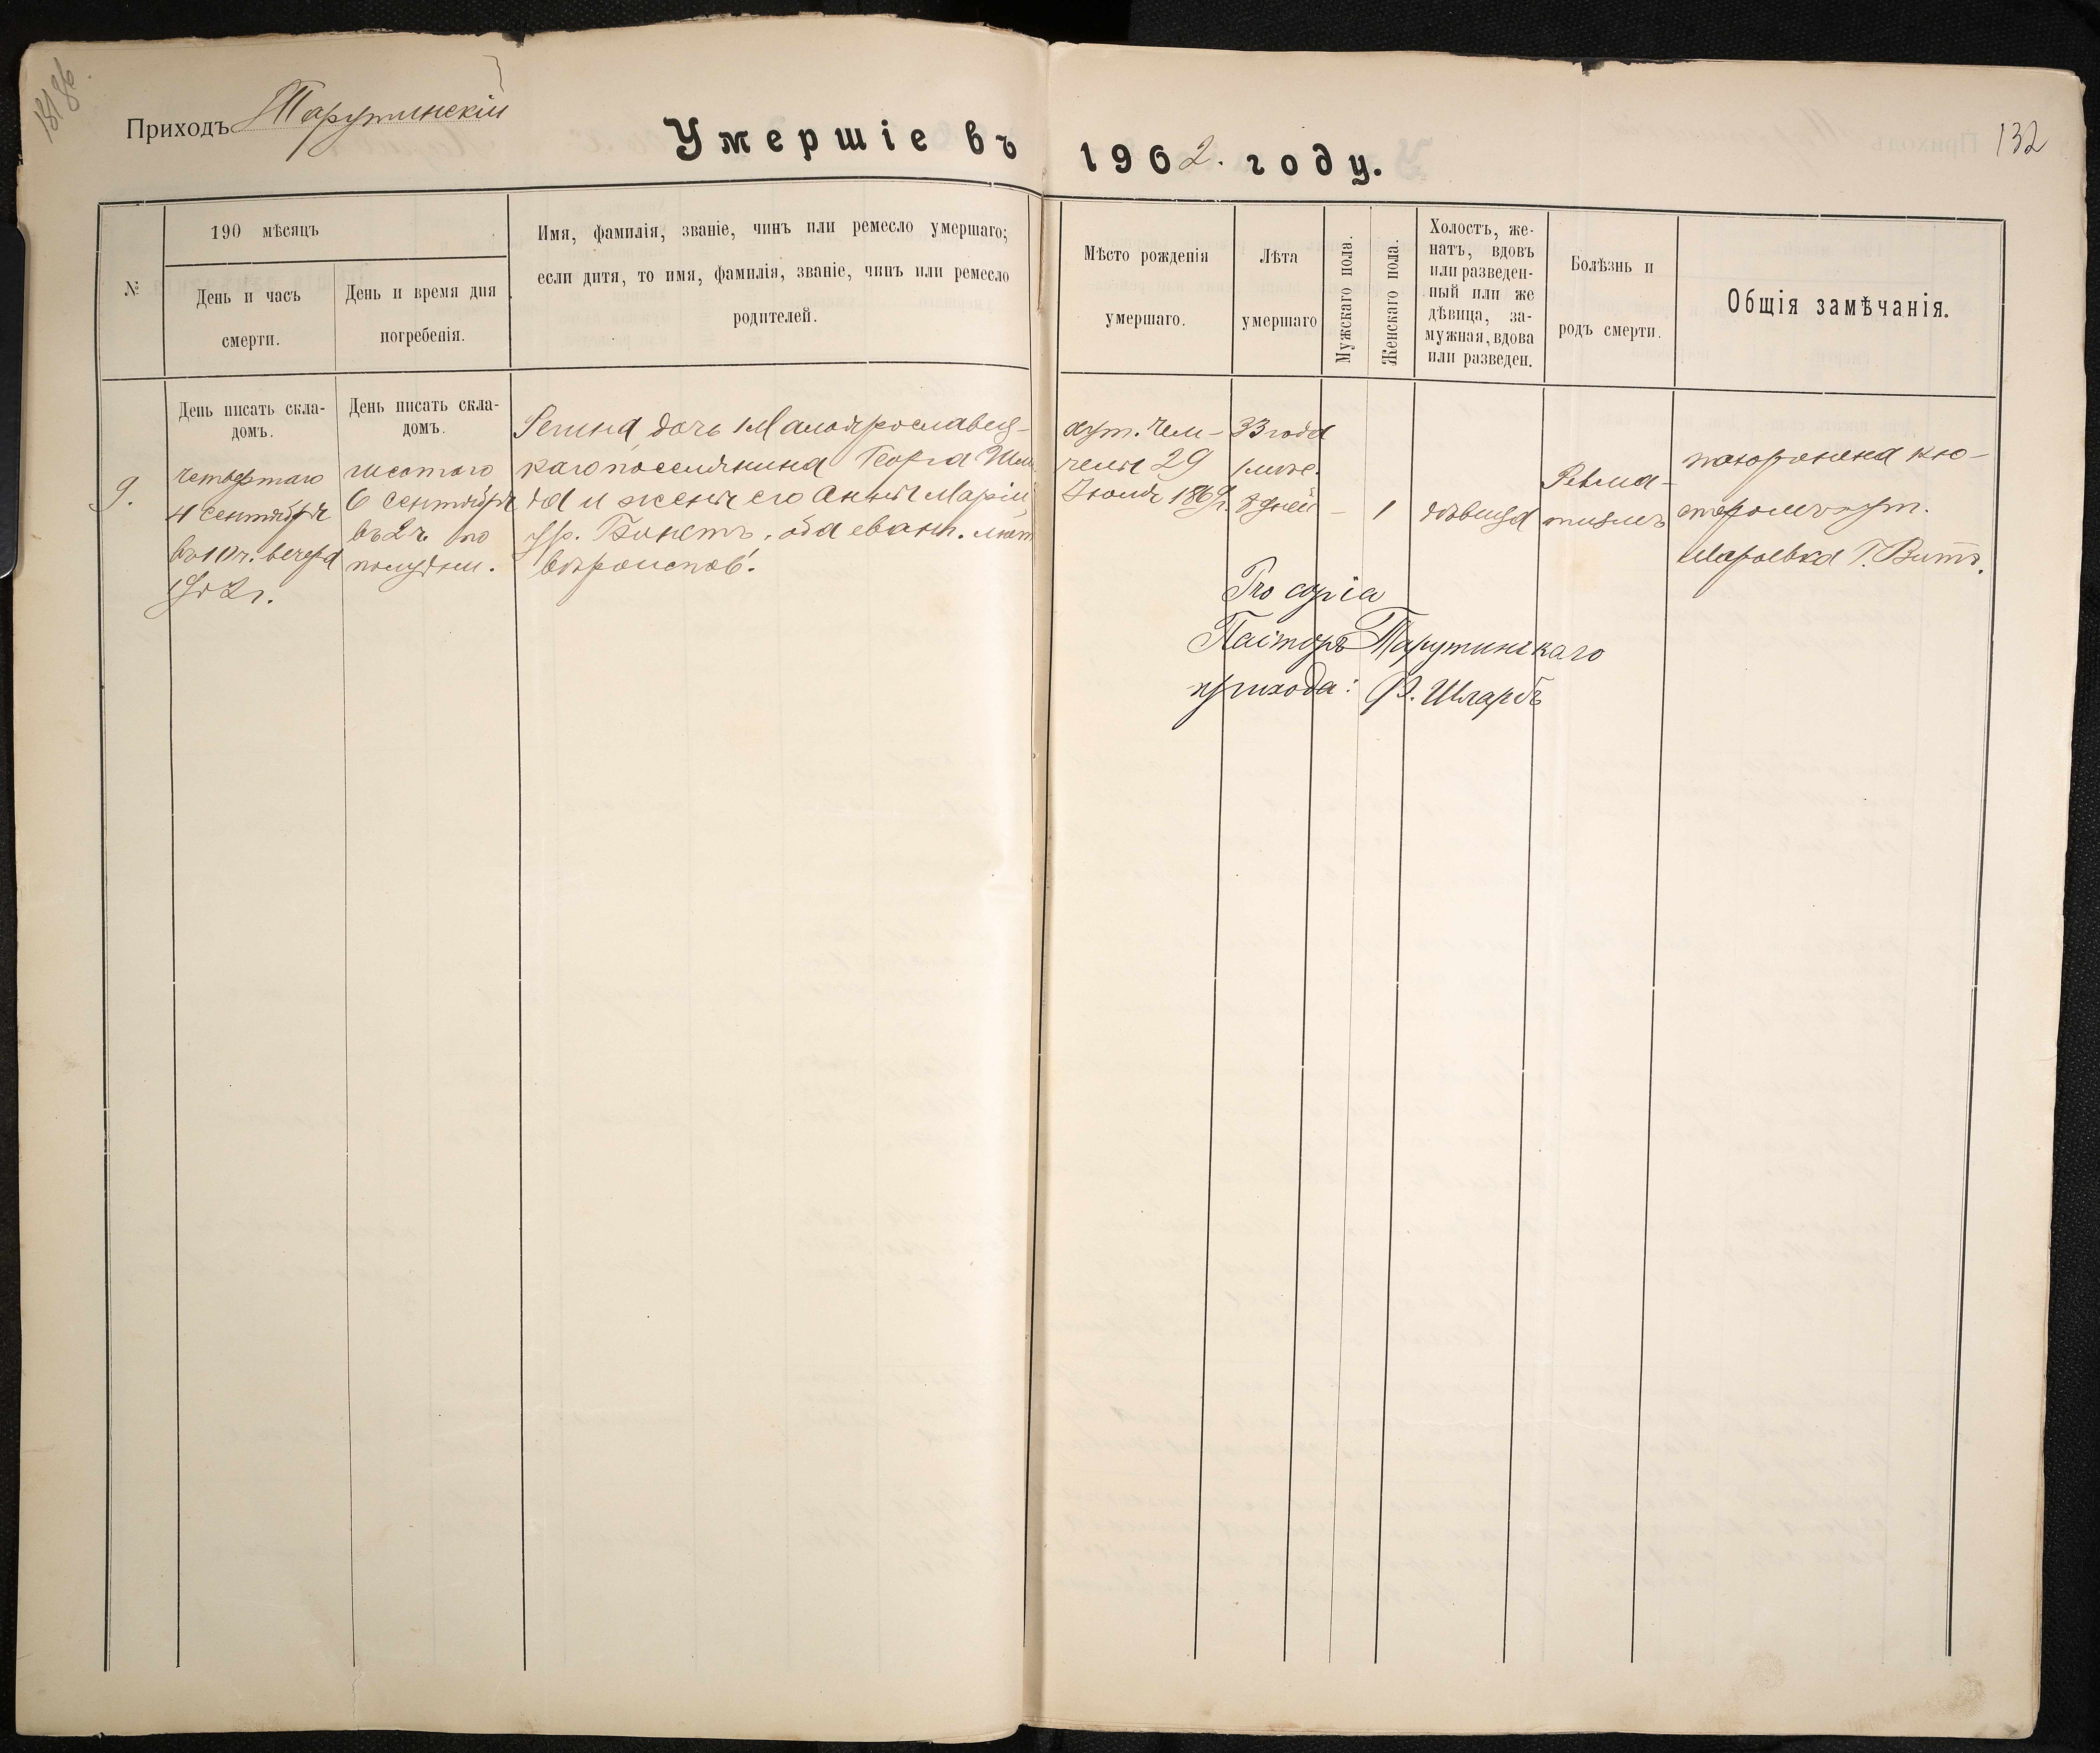 Приходъ Тарутинскій
Умершіе въ 1902. году.
132
№
190 мѣсяцъ
День и часъ
смерти.
День и время дня
погребенія.
Имя, фамилія, званіе, чинъ или ремесло умершаго;
если дитя, то имя, фамилія, званіе, чинъ или ремесло
родителей.
Мѣсто рожденія
умершаго.
Лѣта
умершаго
Мужскаго пола.
Женскаго пола.
Холостъ, же-
натъ, вдовъ
или разведен-
ный или же
дѣвица, за-
мужная, вдова
или разведен.
Болѣзнь и
родъ смерти.
Общія замѣчанія.
9.
День писать скла-
домъ.
четвертаго
4 сентября
въ 10 ч. вечера
1902 г.
День писать скла-
домъ.
шестого
6 сентября
въ 2 ч. по
полудни.
дочь Малоярославец-
каго поселянина Георга
и жены его Анны Маріи,
ур. оба еванг. лют
вѣроисповѣ.
хут. Чем-
челы 29
Іюля 1869 г.
33 года
1 мѣс.
8 дней
-
1
дѣвица
Ревма-
тизмъ
похоронена кю-
стеромъ хут.
Г. Витъ.
Pro copia
Пасторъ Тарутинскаго
прихода: Ф. Шларбъ